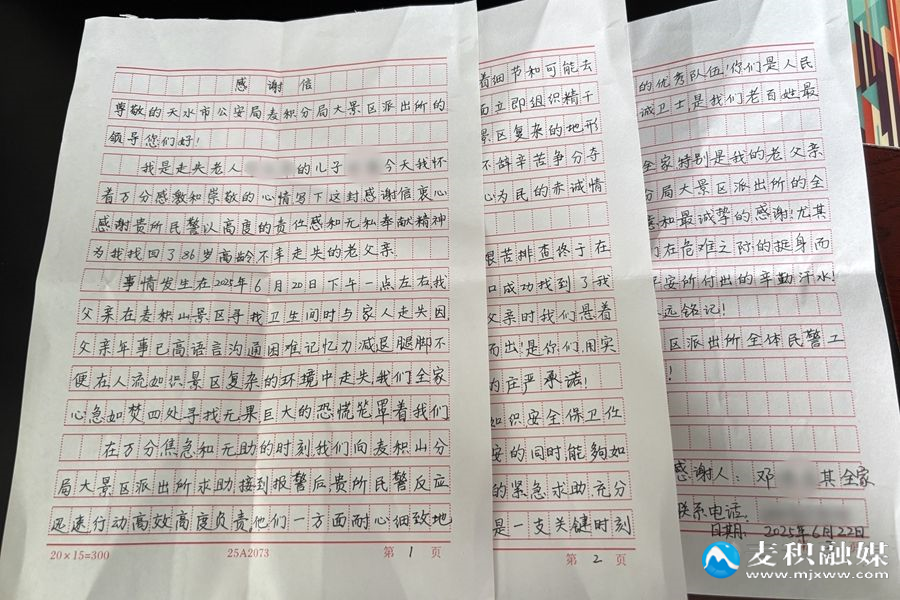 感谢信
尊敬的天水市公安局麦积分局大景区派出所的
领导您们好！
我是走失老人 的儿子 今天我怀
着万分感激和崇敬的心情写下这封感谢信衷心
感谢贵所民警以高度的责任感和无私奉献精神
为我找回了86岁高龄不幸走失的老父亲.
事情发生在2025年6月20日下午一点左右我
父亲在麦积山景区寻找卫生间时与家人走失因
父亲年事已高语言沟通困难记忆力减退腿脚不
便在人流如织景区复杂的环境中走失,我们全家
心急如焚四处寻找无果巨大的恐慌笼罩着我们
在万分焦急和无助的时刻我们向麦积山分
局大景区派出所求助接到报警后贵所民警反应
迅速行动高效高度负责他们一方面耐心细致地
20×15=300 25A2073 第 1 页
着细节和可能去
面立即组织精干
景区复杂的地形
不辞辛苦争分夺
心为民的赤诚情
艰苦排查终于在
口成功找到了我
父亲时我们悬着
而出!是你们,用实
为庄严承诺!
如织安全保卫任
安的同时能够如
的紧急求助充分
是一支关键时刻
第 2 页
的优秀队伍!你们是人民
诚卫士,是我们老百姓最
全家特别是我的老父亲
分局大景区派出所的全
意和最诚挚的感谢!尤其
们在危难之际的挺身而
平安所付出的辛勤汗水!
永远铭记!
区派出所全体民警工
!
感谢人：邓 其全家
联系电话:
日期: 2025年6月22日
麦积融媒
www.mjxww.com